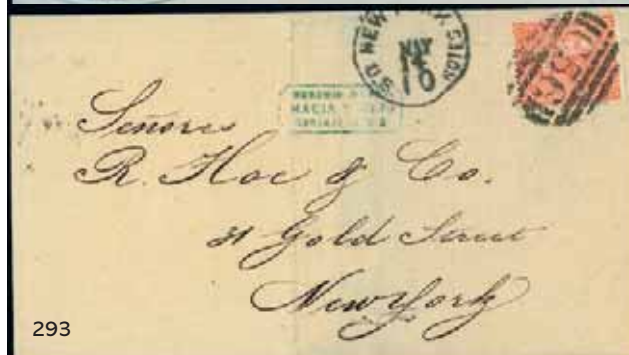 NEW
U.S. NOTES
MAY
10
MACIA
Señores
R. Hoe & Co.
31 Gold Street
New York
293